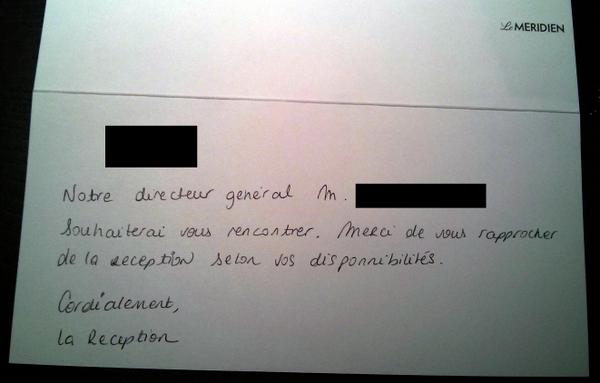 Le MERIDIEN
Notre directeur général M.
Souhaiterai vous rencontrer. Merci de vous rapprocher
de la reception selon vos disponnibilités.
Cordialement,
la Reception